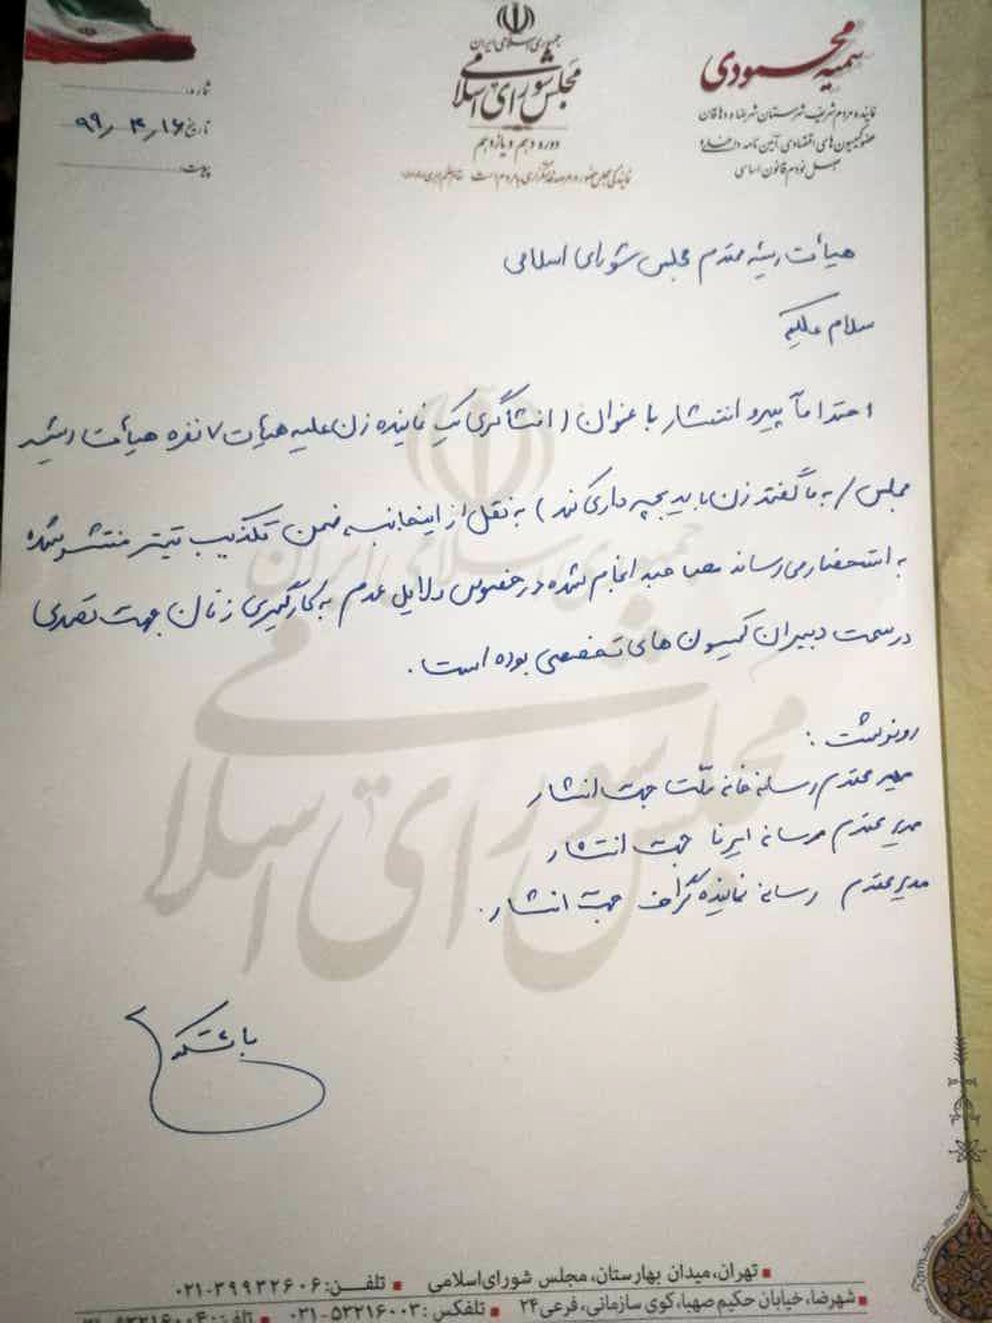 جمهوری اسلامی ایران
مجلس شورای اسلامی
دوره دهم و یازدهم
سمیه محمودی
نماینده مردم شریف شهرستان شهرضا و دهاقان
عضو کمیسیون‌های اقتصادی، آئین نامه داخلی و
اصل نودم قانون اساسی
شماره:
تاریخ: ۹۹/۴/۱۶
پیوست:
هیأت رئیسه محترم مجلس شورای اسلامی
سلام علیکم
احتراماً پیرو انتشار با عنوان (افشاگری یک نماینده زن علیه هیات ۷ نفره هیأت رئیسه
مجلس / به ما گفتند زن باید بچه داری کند) به نقل از اینجانب، ضمن تکذیب تیتر منتشر شده
به استحضار می‌رساند مصاحبه انجام شده در خصوص دلایل عدم به کارگیری زنان جهت تصدی
در سمت دبیران کمیسیون های تخصصی بوده است.
رونوشت:
مدیر محترم رسانه خانه ملّت جهت انتشار
مدیر محترم رسانه ایرنا جهت انتشار
مدیر محترم رسانه نماینده گراف جهت انتشار.
با تشکر
جمهوری اسلامی ایران
مجلس شورای اسلامی
تهران، میدان بهارستان، مجلس شورای اسلامی ▪ تلفن: ۰۲۱-۳۹۹۳۲۶۰۶
شهرضا، خیابان حکیم صهبا، کوی سازمانی، فرعی ۲۴ ▪ تلفکس: ۰۳۱-۵۳۲۱۶۰۰۳ ▪ تلفن: